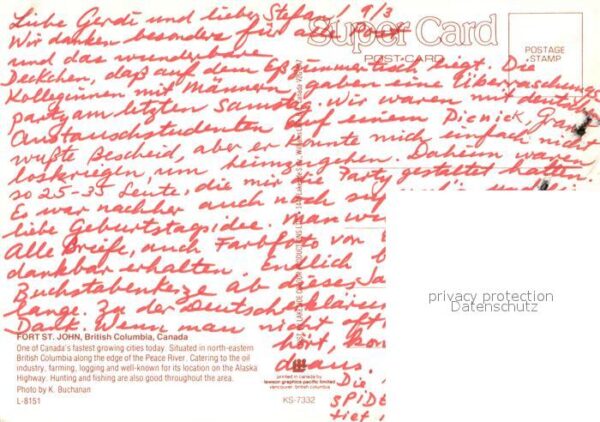 Liebe Gerdi und lieber Stefan! 9/3
Wir danken besonders für alle Post
und das wunderbare
Deckchen, daß auf dem Eßzimmertisch liegt. Die
Kolleginnen mit Männern, gaben eine Überraschungs
party am letzten Samstag. Wir waren mit deutsch
Austauschstudenten auf einem Picnick,
wußte Bescheid, aber er konnte mich einfach nicht
loskriegen, um heimzugehen. Daheim waren
so 25-35 Leute, die mir die Party gestaltet hatten.
Es war nachher auch noch
liebe Geburtstagsidee. man
Alle Briefe, auch Farbfoto von
dankbar erhalten. Endlich
Buchstabenkerze ab dieses
lange. Zu der Deutscherklären
Dank. Wenn man nicht oft
hört,
draus.
Die
SPID
tief
Super Card
POST CARD
POSTAGE
STAMP
privacy protection
Datenschutz
FORT ST. JOHN, British Columbia, Canada
One of Canada's fastest growing cities today. Situated in north-eastern
British Columbia along the edge of the Peace River. Catering to the oil
industry, farming, logging and well-known for its location on the Alaska
Highway. Hunting and fishing are also good throughout the area.
Photo by K. Buchanan
L-8151
printed in canada by
lawson graphics pacific limited
vancouver, british columbia
KS-7332